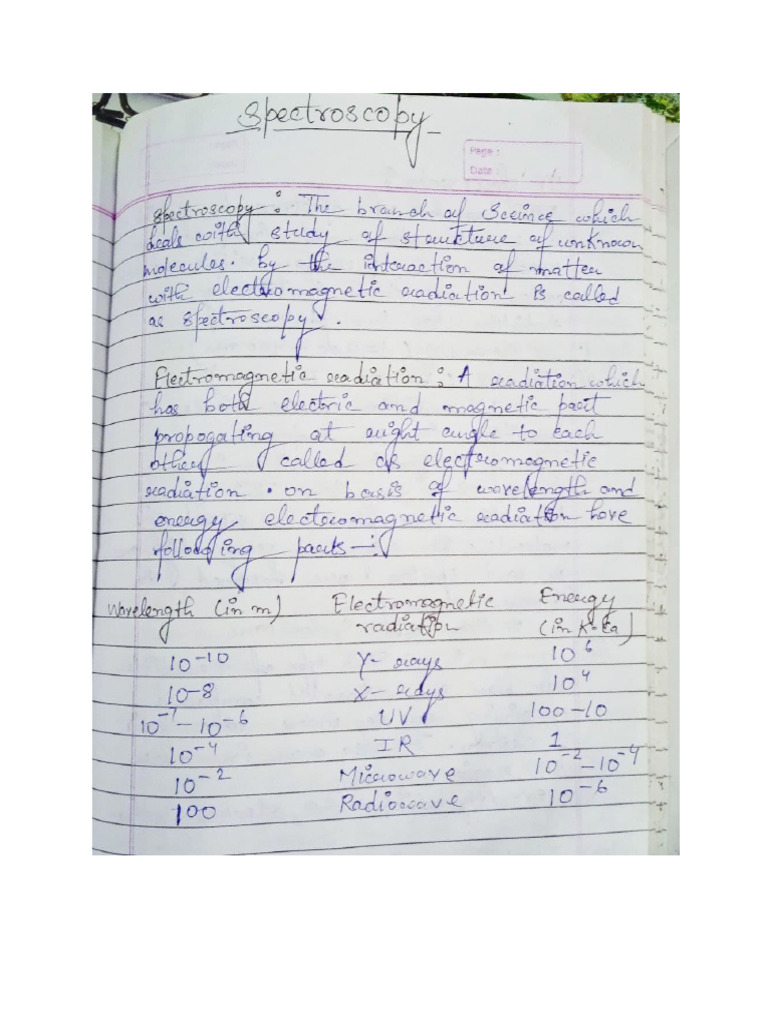 Spectroscopy
Page :
Date :
Spectroscopy : The branch of Science which
deals with study of structure of unknown
molecules. by the interaction of matter
with electromagnetic radiation is called
as spectroscopy.
Electromagnetic radiation : A radiation which
has both electric and magnetic part
propogating at right angle to each
other called as electromagnetic
radiation. on basis of wavelength and
energy electromagnetic radiation have
following parts-:
Wavelength (in m) Electromagnetic Energy
radiation (in K.
10-10 γ- rays 10⁶
10-8 X- rays 10⁴
10⁻⁷-10⁻⁶ UV 100-10
10⁻⁴ IR 1
10⁻² Microwave 10⁻²-10⁻⁴
100 Radiowave 10⁻⁶